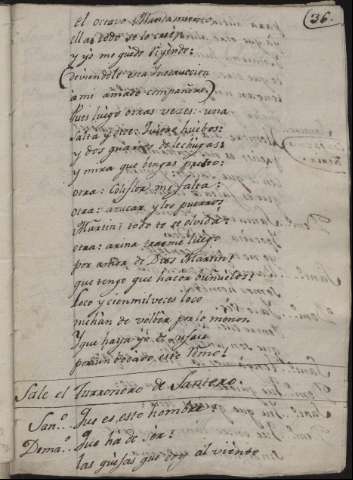 36.
el octavo Mandamiento
ella todo se lo carga
y yo me quedo diciendo:
(deviendole esa Instruccion
a mi amado compañero)
Pues luego otras vezes: una
salta y dice: quiero huebos:
y dos quartos de lechugas:
y mira que bengas presto:
otra: Coliflor me falta:
otra: azucar, y los puerros
Martin: todo te se olvida:
otra: arina traeme luego
por amor de Dios Martin:
que tengo que hacer buñuelos:
loco y cien mil vezes loco
me han de volver por lo menos
Y que haya yo de
por un bocado, este
Sale el Turronero de Santero.
San.º.. Que es este hombre?
Dema.º.. Que ha de ser?
las quejas que doy al viento